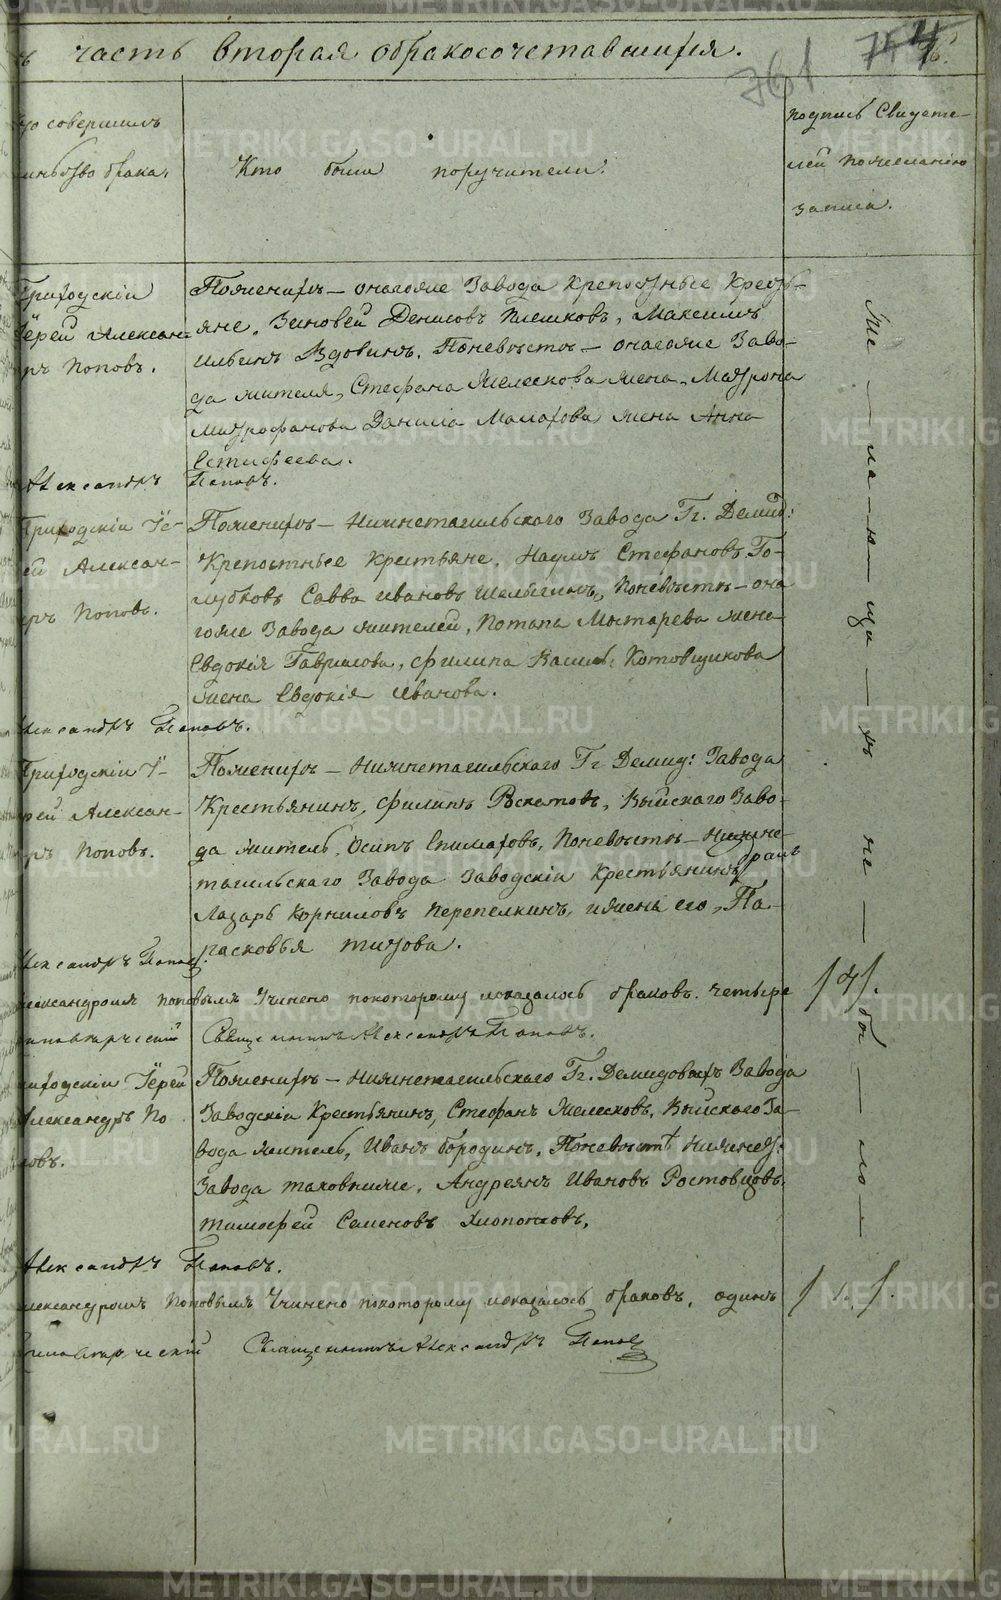 часть вторая обракосочетавшихся.
761
кто совершилъ
таинство брака.
Кто были поручители.
подпись Свидете-
лей пожеланію
записи.
Приходскій
Іерей Алексан-
дръ Поповъ.
Поженихѣ — оногоже Завода крепостные Кресть-
яне, Зиновей Денисовъ Плешковъ, Максимъ
Ильинъ Вдовинъ. Поневѣстѣ — оногоже Заво-
да жителя, Стефана Желескова жена, Матрона
Митрофанова Данила Малахова жена Анна
Естифеева.
Александръ Поповъ.
Приходскій Іе-
рей Алексан-
дръ Поповъ.
Поженихѣ — Нижнетагильскаго Завода Гг. Демид:
Крепостные Крестьяне, Наумъ Стефановъ Го-
лубковъ Савва Ивановъ Шелыгинъ, Поневѣстѣ — оно
гоже Завода жителей, Потапа Мытарева жена
Евдокія Гаврилова, Филипа Васил: Котовщикова
жена Евдокія Иванова.
Александръ Поповъ.
Приходскій І-
ерей Алексан-
дръ Поповъ.
Поженихѣ — Нижнетагильскаго Гг Демид: Завода
Крестьянинъ, Филипъ Выйскаго Заво-
да житель, Осипъ Епимаховъ, Поневѣстѣ — Нижне-
тагильскаго Завода Заводскій Крестьянинъ
Лазарь Корниловъ Перепелкинъ, ижена его, Па-
расковья Титова.
Александръ Поповъ
Александромъ Поповымъ Учинено покоторому показалось браковъ. четыре /4/.
Священникъ Александръ Поповъ.
Приходскій Іерей
Александръ По
повъ.
Поженихѣ — Нижнетагильскаго Гг. Демидовыхъ Завода
Заводскій Крестьянинъ, Стефанъ Желесковъ, Выйскаго За-
вода житель, Иванъ Бородинъ, Поневѣстѣ Нижнет:
Завода таковыеже, Андреянъ Ивановъ Ростовцовъ,
тимофей Семеновъ Хлопотовъ,
Александръ Поповъ.
Александромъ Поповымъ Учинено покоторому показалось браковъ, одинъ /1/.
Священникъ Александръ Поповъ
Же — ла — ю — ща — го не — бы — ло —